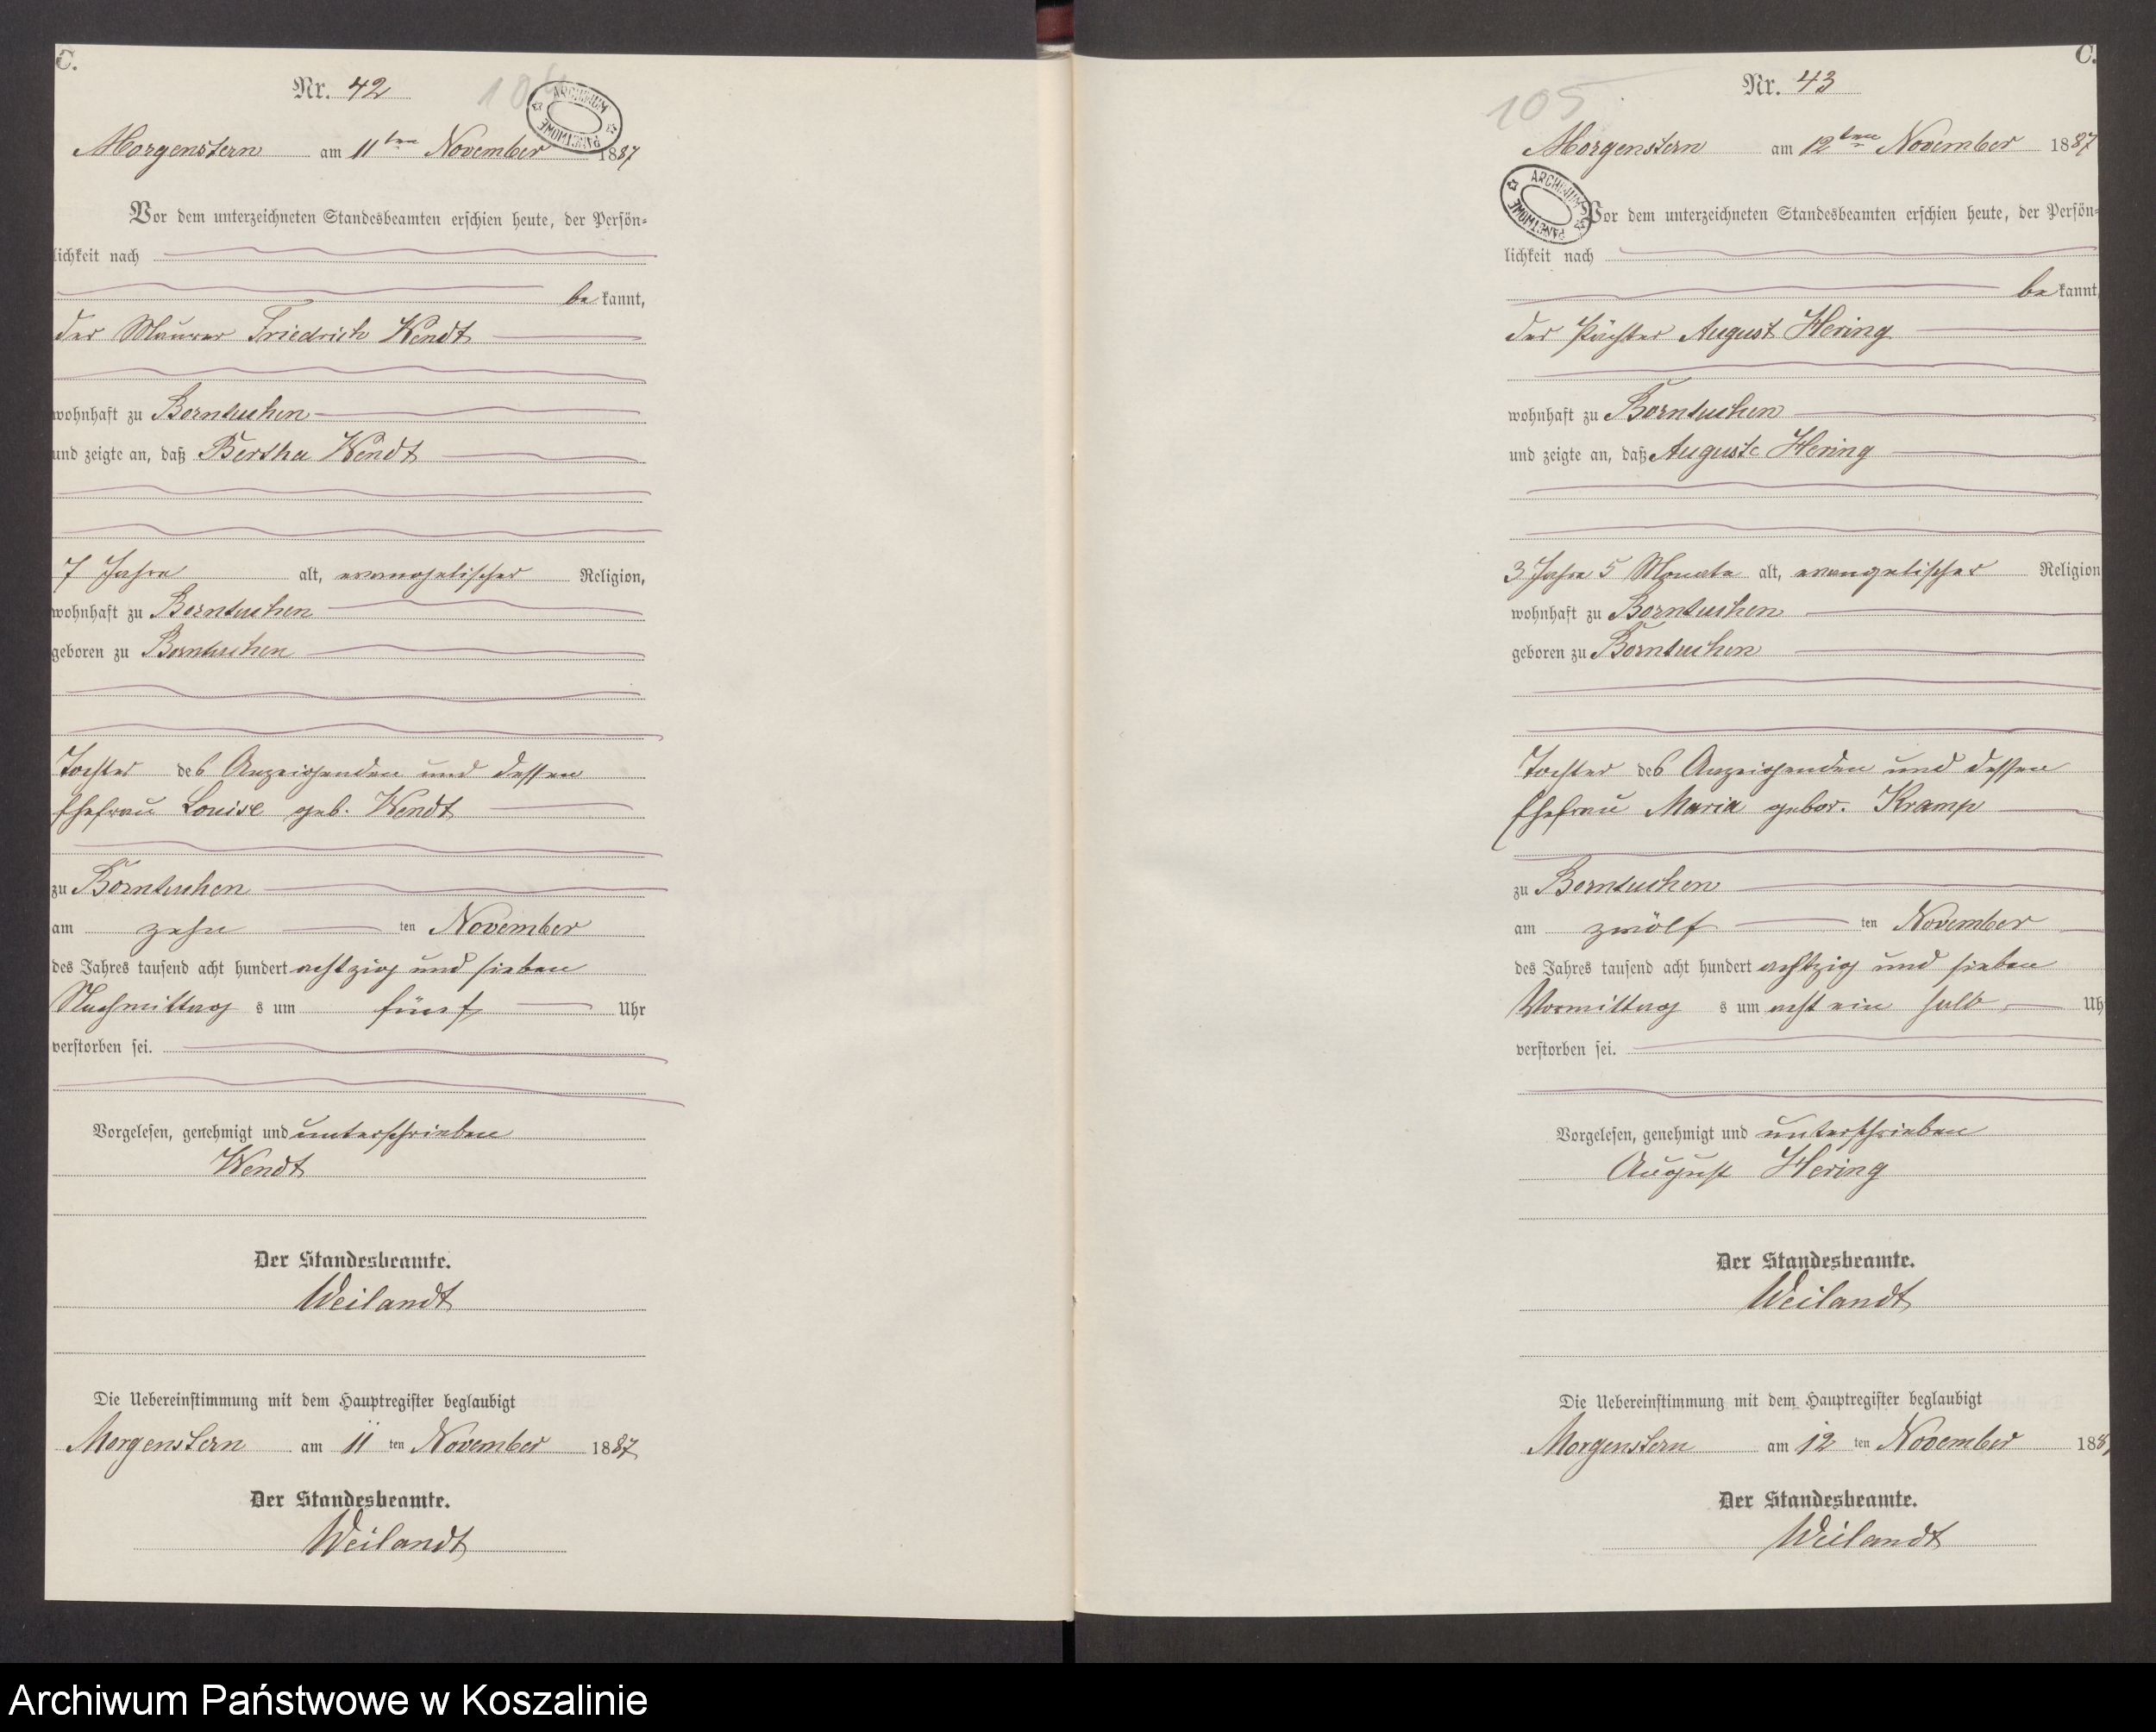 C.
Nr. 42
104
ARCHIWUM PAŃSTWOWE
Morgenstern am 11ten November 1887
Vor dem unterzeichneten Standesbeamten erschien heute, der Persön=
lichkeit nach
be kannt,
der Maurer Friedrich Wendt
wohnhaft zu Borntuchen
und zeigte an, daß Bertha Wendt
7 Jahre alt, evangelischer Religion,
wohnhaft zu Borntuchen
geboren zu Borntuchen
Tochter des Anzeigenden und dessen
Ehefrau Louise geb. Wendt
zu Borntuchen
am zehn ten November
des Jahres tausend acht hundert achtzig und sieben
Nachmittag s um fünf Uhr
verstorben sei.
Vorgelesen, genehmigt und unterschrieben
Wendt
Der Standesbeamte.
Weilandt
Die Uebereinstimmung mit dem Hauptregister beglaubigt
Morgenstern am 11 ten November 1887
Der Standesbeamte.
Weilandt
C.
Nr. 43
105
Morgenstern am 12ten November 1887
ARCHIWUM PAŃSTWOWE
Vor dem unterzeichneten Standesbeamten erschien heute, der Persön=
lichkeit nach
be kannt,
der Pächter August Hering
wohnhaft zu Borntuchen
und zeigte an, daß Auguste Hering
3 Jahre 5 Monate alt, evangelischer Religion
wohnhaft zu Borntuchen
geboren zu Borntuchen
Tochter des Anzeigenden und dessen
Ehefrau Maria gebor. Kramp
zu Borntuchen
am zwölf ten November
des Jahres tausend acht hundert achtzig und sieben
Vormittag s um acht ein halb Uh
verstorben sei.
Vorgelesen, genehmigt und unterschrieben
August Hering
Der Standesbeamte.
Weilandt
Die Uebereinstimmung mit dem Hauptregister beglaubigt
Morgenstern am 12 ten November 188
Der Standesbeamte.
Weilandt
Archiwum Państwowe w Koszalinie